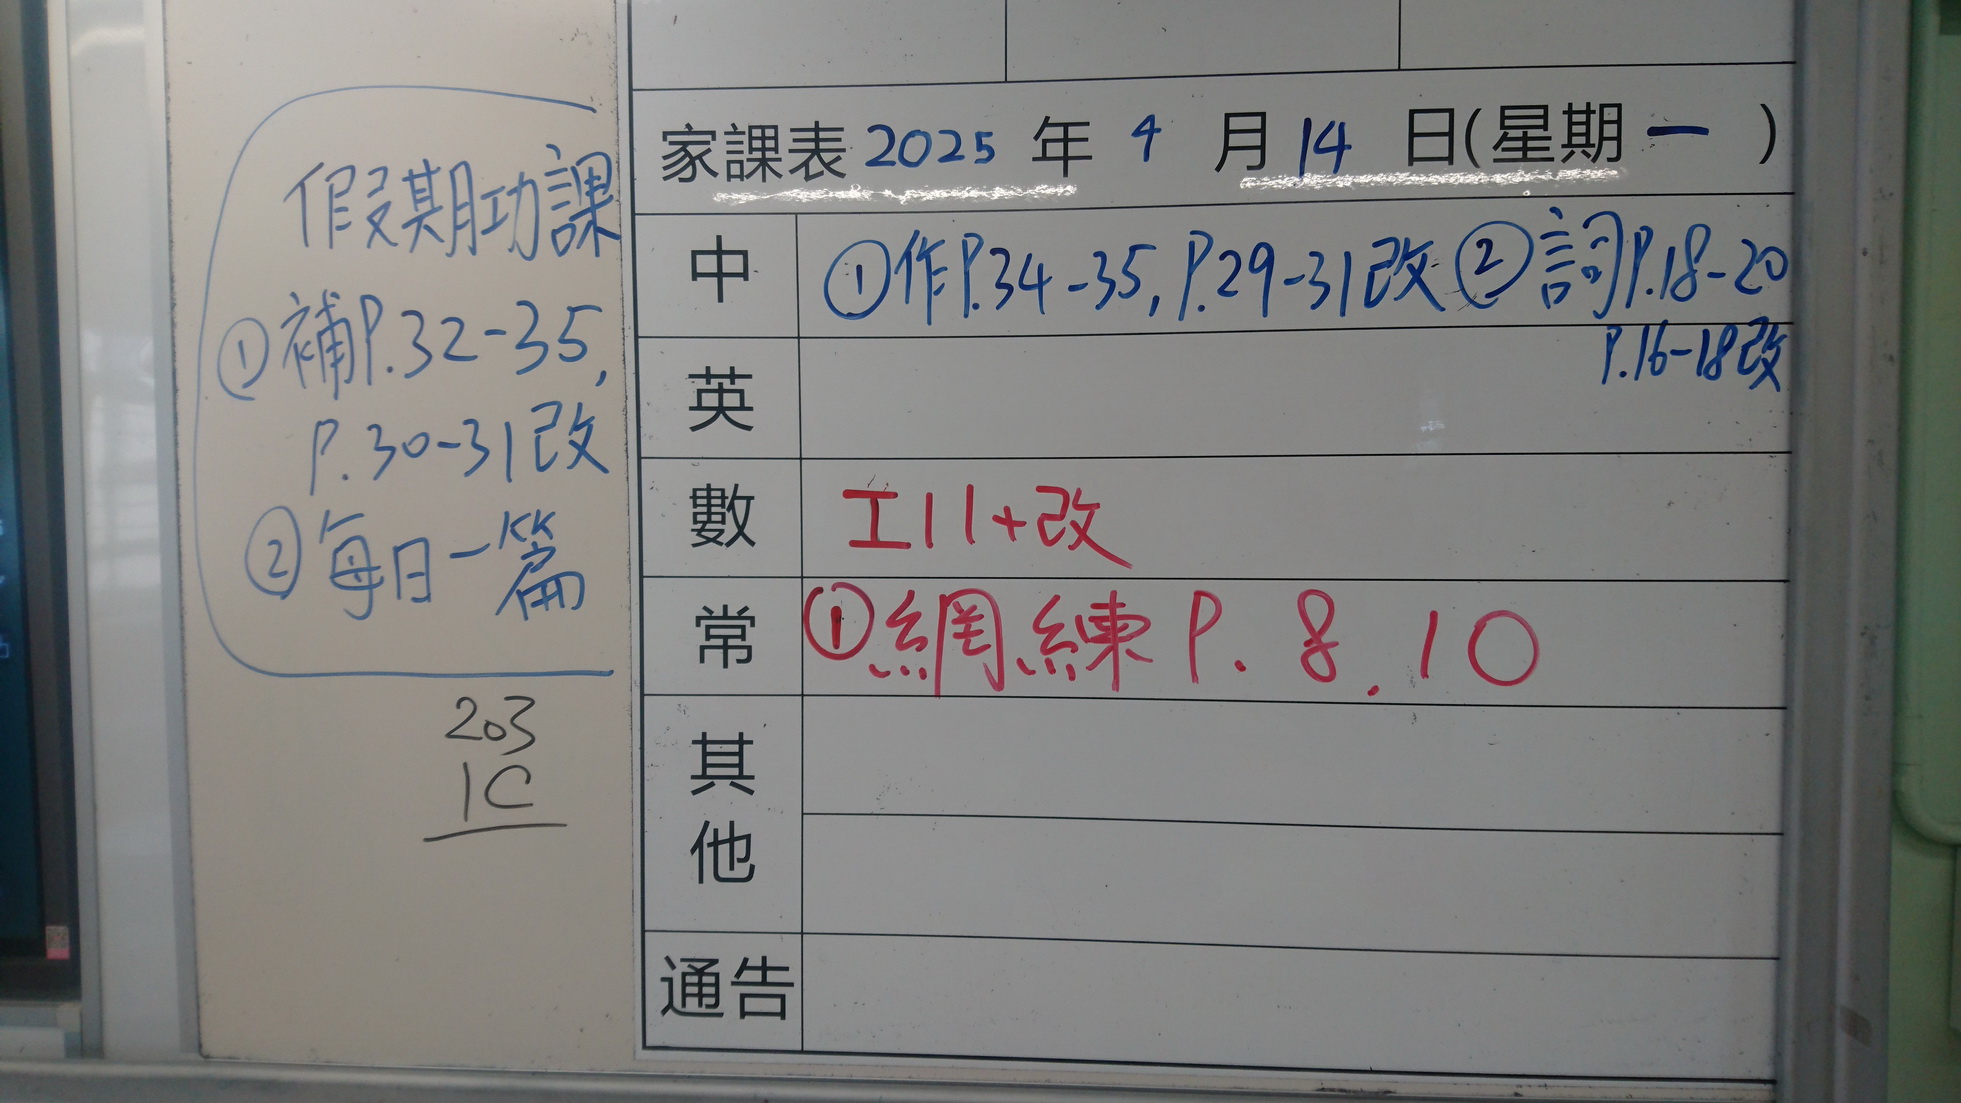 假期功課
①補P.32-35,
P.30-31改
②每日一篇
203
1C
家課表 2025 年 4 月 14 日(星期一)
中 ①作P.34-35, P.29-31改 ②詞P.18-20
P.16-18改
英
數 工11+改
常 ①網練 P. 8. 10
其他
通告